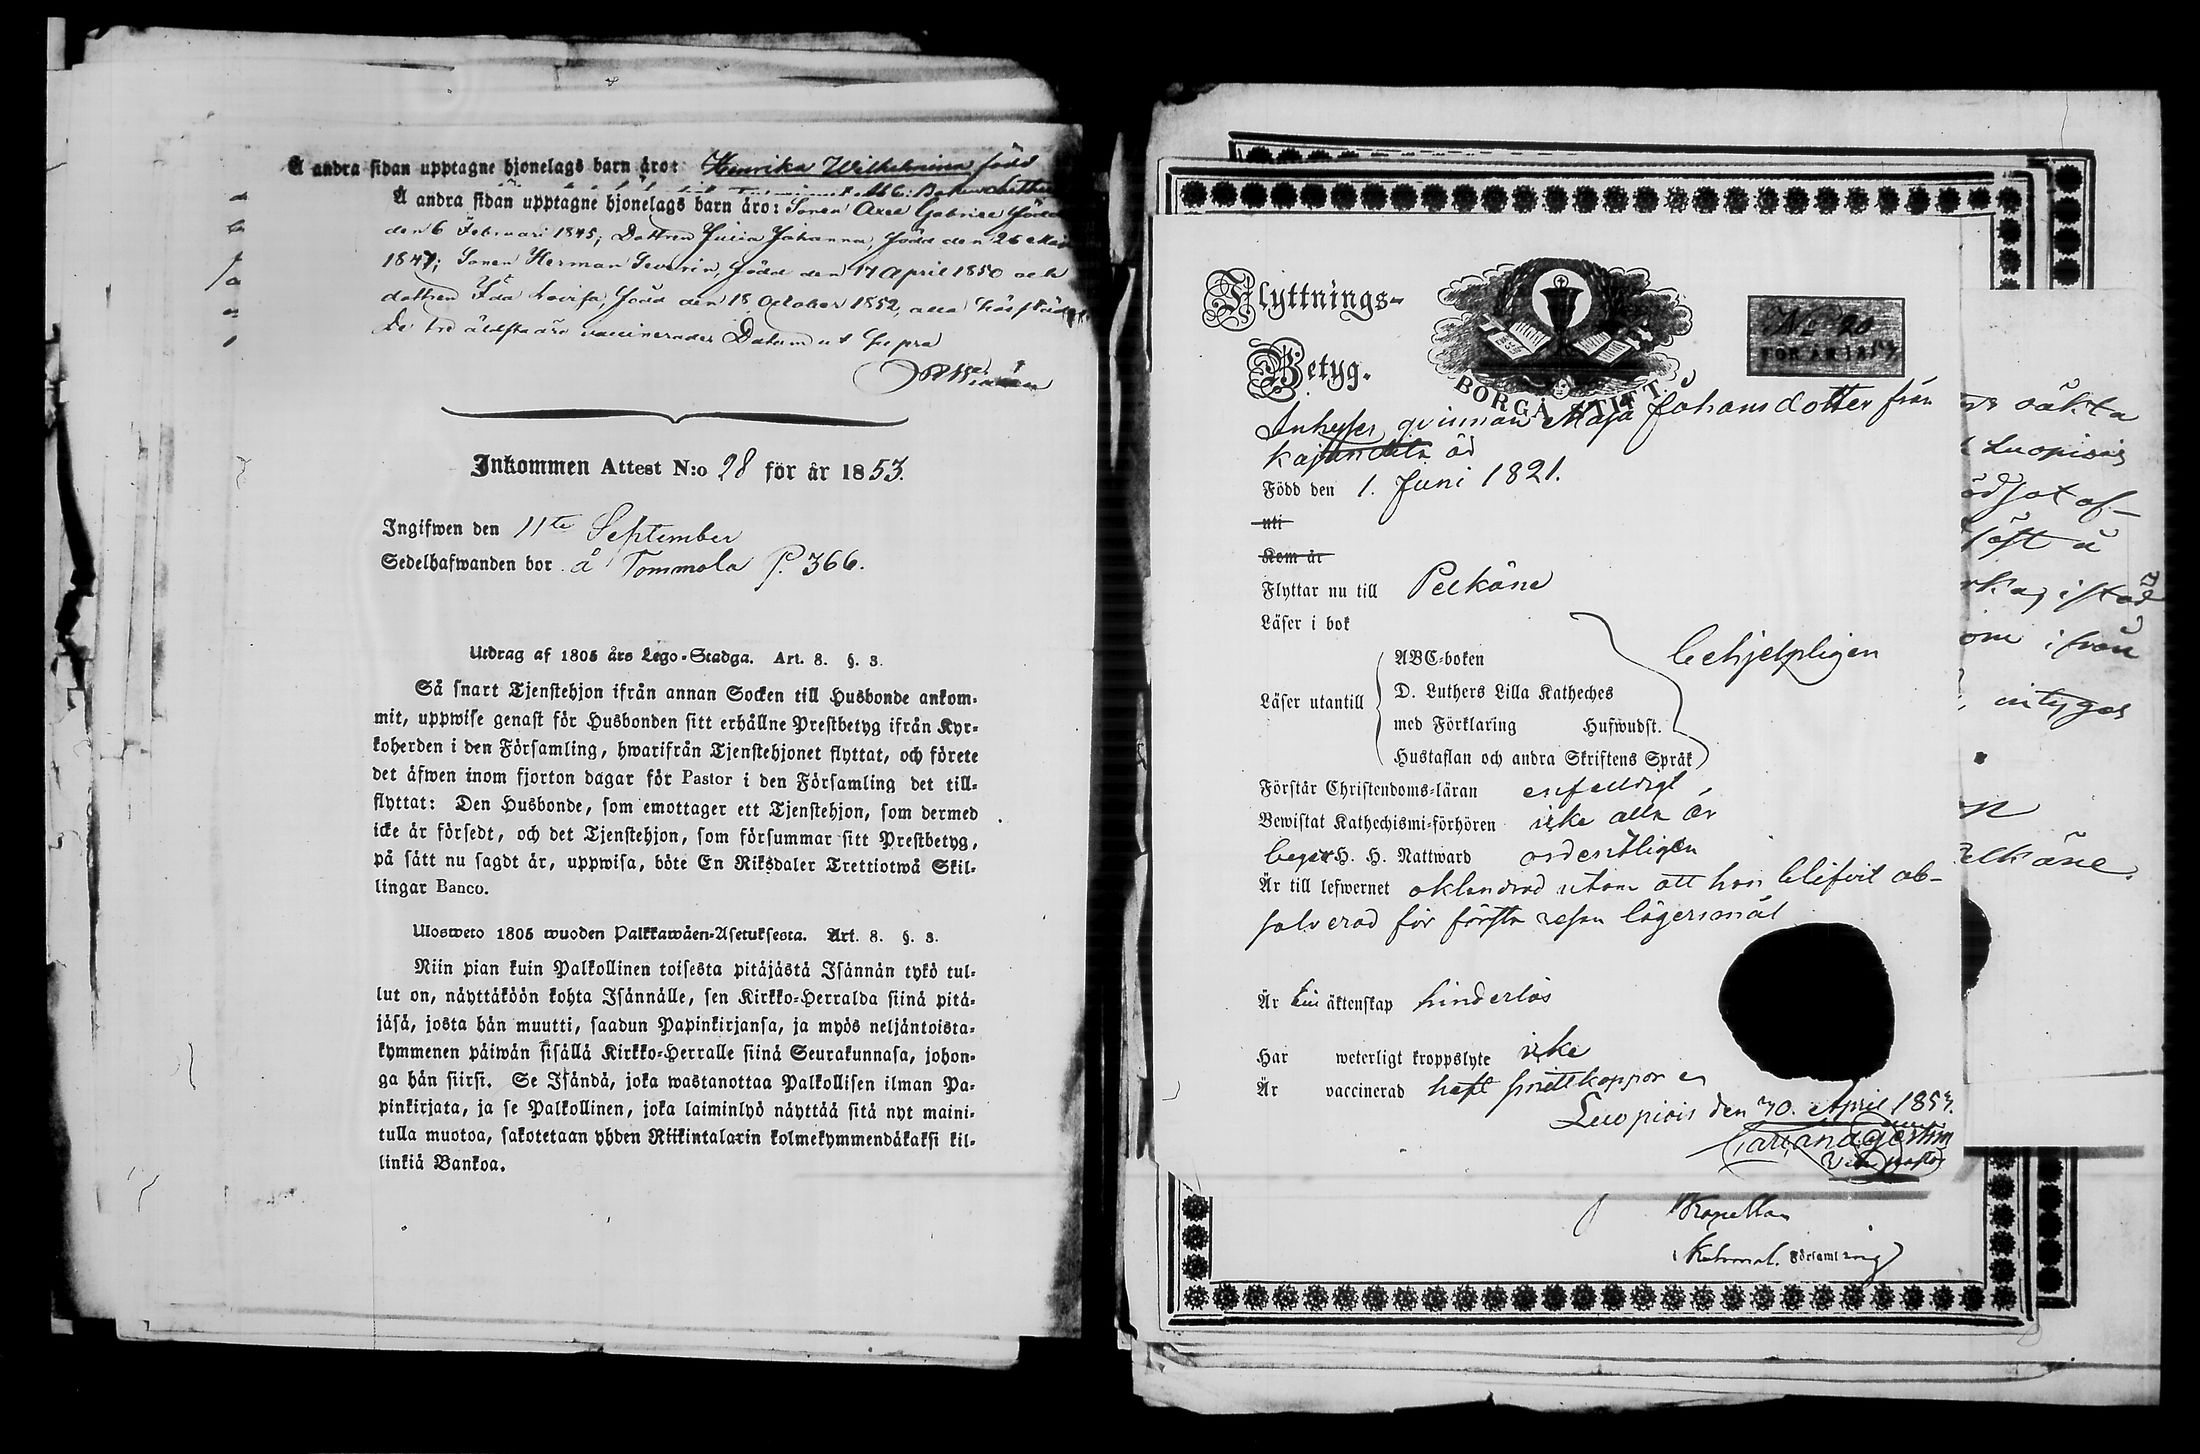 Å andra sidan upptagne hjonelags barn äro: Henrika Wilhelmina född
Å andra sidan upptagne hjonelags barn äro: Sonen Axel Gabriel född
den 6 Februari 1845; Dottren Julia Johanna, född den 26 Maj
1847; Sonen Herman Severin, född den 17 April 1850 och
dottren Ida Lovisa, född den 18 October 1852, alla
De tre äldsta äro vaccinerade. Datum ut supra
Inkommen Attest N:o 28 för år 1853.
Ingifwen den 11te September
Sedelhafwanden bor å Tommola P. 366.
Utdrag af 1805 års Lego-Stadga. Art. 8. §. 3.
Så snart Tjenstehjon ifrån annan Socken till Husbonde ankom-
mit, uppwise genast för Husbonden sitt erhållne Prestbetyg ifrån Kyr-
koherden i den Församling, hwarifrån Tjenstehjonet flyttat, och förete
det äfwen inom fjorton dagar för Pastor i den Församling det till-
flyttat: Den Husbonde, som emottager ett Tjenstehjon, som dermed
icke är försedt, och det Tjenstehjon, som försummar sitt Prestbetyg,
på sätt nu sagdt är, uppwisa, böte En Riksdaler Trettiotwå Skil-
lingar Banco.
Ulosweto 1805 wuoden Palkkawäen-Asetuksesta. Art. 8. §. 3.
Niin pian kuin Palkollinen toisesta pitäjästä Isännän tykö tul-
lut on, näyttäköön kohta Isännälle, sen Kirkko-Herralda siinä pitä-
jäsä, josta hän muutti, saadun Papinkirjansa, ja myös neljäntoista-
kymmenen päiwän sisällä Kirkko-Herralle siinä Seurakunnasa, johon-
ga hän siirsi. Se Isändä, joka wastanottaa Palkollisen ilman Pa-
pinkirjata, ja se Palkollinen, joka laiminlyö näyttää sitä nyt maini-
tulla muotoa, sakotetaan yhden Riikintalarin kolmekymmendäkaksi kil-
linkiä Bankoa.
Flyttnings-
Betyg.
BORGÅ STIFT
No 20
FÖR ÅR 1857
Inhyses qvinnan Maja Johansdotter från
Född den 1. Juni 1821.
uti
Kom år
Flyttar nu till Pelkäne
Läser i bok
Läser utantill
ABC-boken
D. Luthers Lilla Katheches
med Förklaring Hufwudst.
Hustaflan och andra Skriftens Språk
behjelpligen
Förstår Christendoms-läran enfaldigt
Bewistat Kathechismi-förhören icke alla år
begått H. H. Nattward ordentligen
Är till lefwernet oklandrad utom att hon blifvit ab-
solverad för första resan lägersmål
Är till äktenskap hinderlös
Har weterligt kroppslyte icke
Är vaccinerad haft
Luopiois den 30. April 1857.
Kapellan
Församling
säkta
Luopiois
ifrån
intygas
Pelkäne.